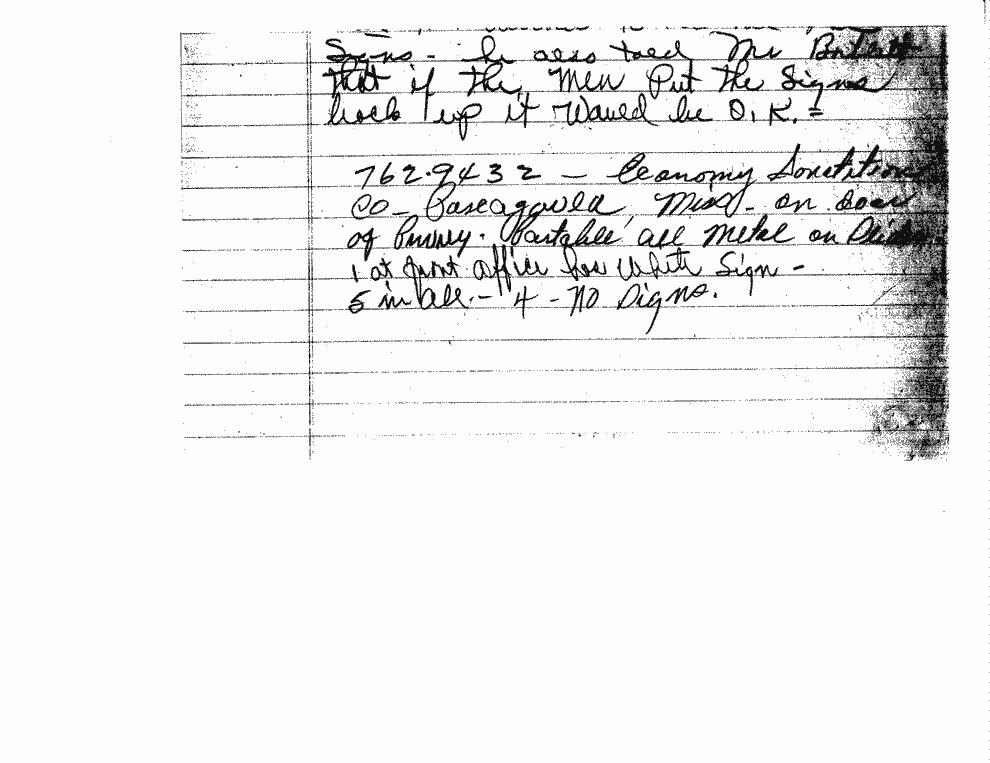 Signs - he also toed Mr
that if the, Men Put the Signs
back up it Waued be O.K. =
762-9432 - Economy Sanitation
Co - Pascagoula, Miss - on door
of Privey. Partable all Metal on
1 at front office has White Sign -
5 in all. - 4 - No Signs.